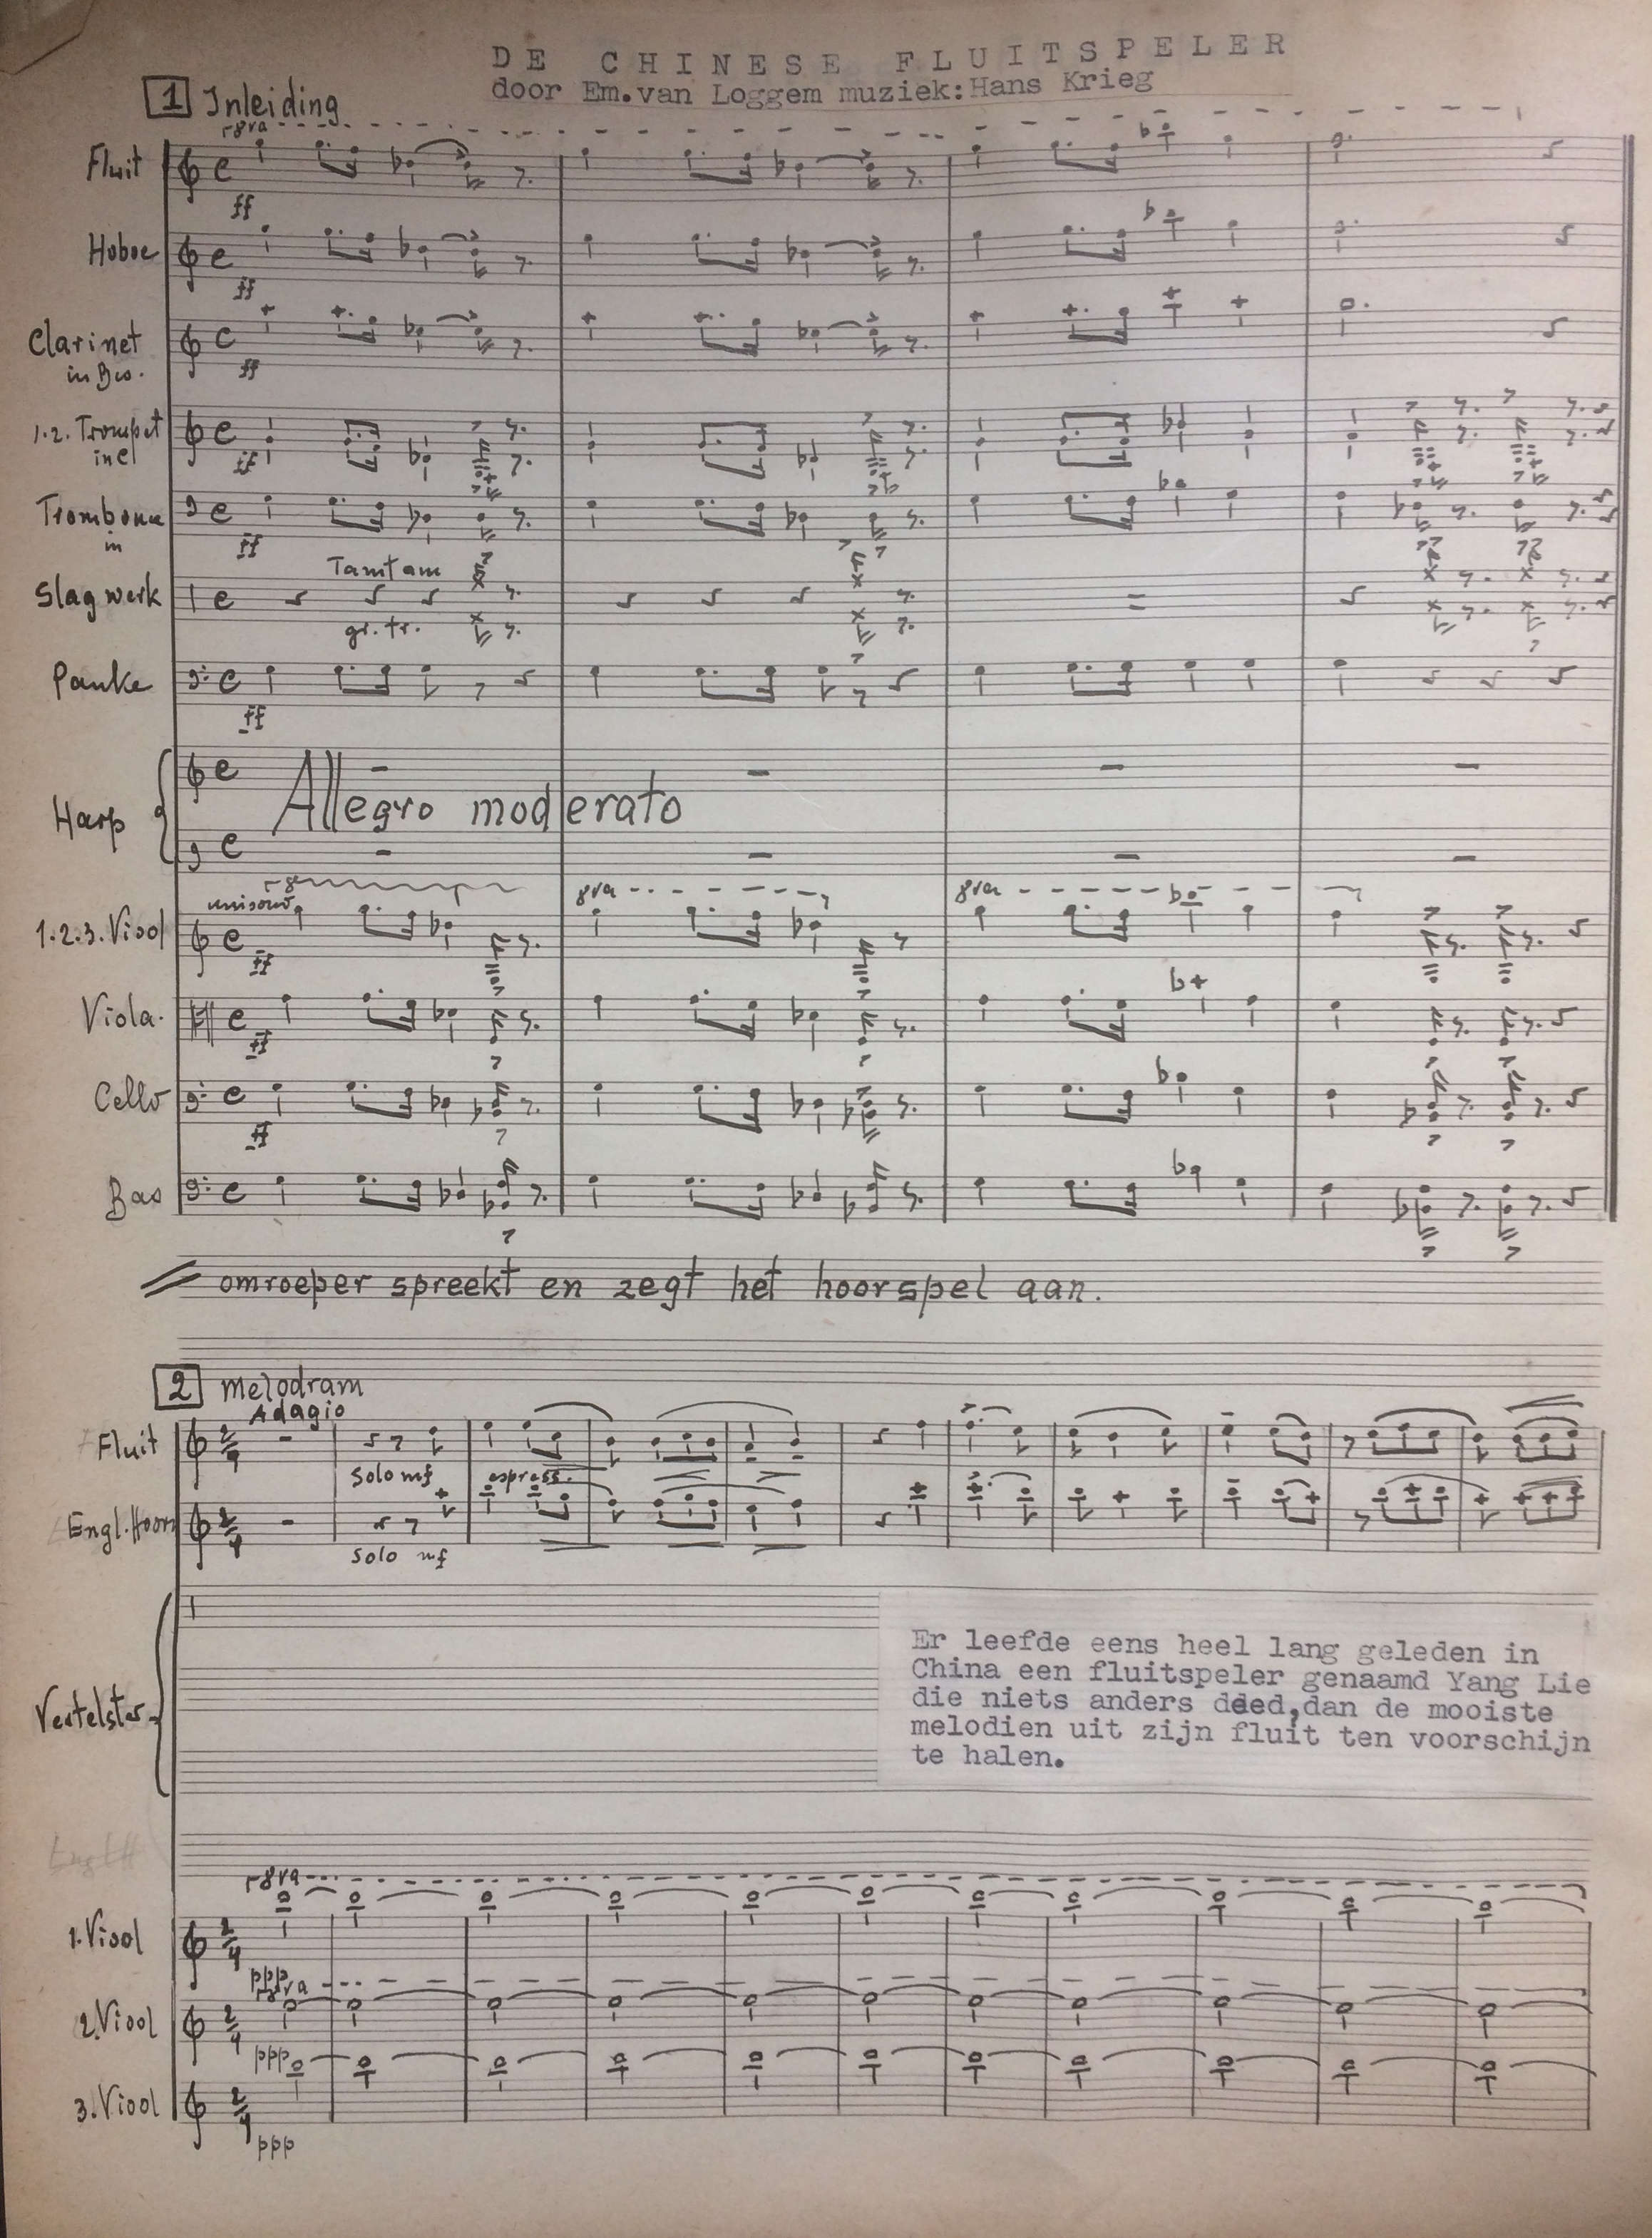 DE CHINESE FLUITSPELER
door Em.van Loggem muziek:Hans Krieg
1 Inleiding
8va
Fluit
ff
Hoboe
ff
Clarinet
in Bes.
ff
1.2. Trompet
in C
ff
Trombone
in
ff
Tamtam
Slagwerk
gr. tr.
Pauke
ff
Harp
Allegro moderato
8
unisono
8va
8va
1.2.3. Viool
ff
Viola.
ff
Cello
ff
Bas
omroeper spreekt en zegt het hoorspel aan.
2 melodram
Adagio
Fluit
2/4
Solo mf
espress.
Engl. Hoorn
2/4
Solo mf
Vertelster
Er leefde eens heel lang geleden in
China een fluitspeler genaamd Yang Lie
die niets anders deed,dan de mooiste
melodien uit zijn fluit ten voorschijn
te halen.
8va
1. Viool
2/4
ppp
8va
2. Viool
2/4
ppp
3. Viool
2/4
ppp